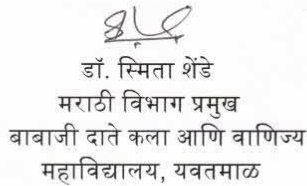 डॉ. स्मिता शेंडे
मराठी विभाग प्रमुख
बाबाजी दाते कला आणि वाणिज्य
महाविद्यालय, यवतमाळ